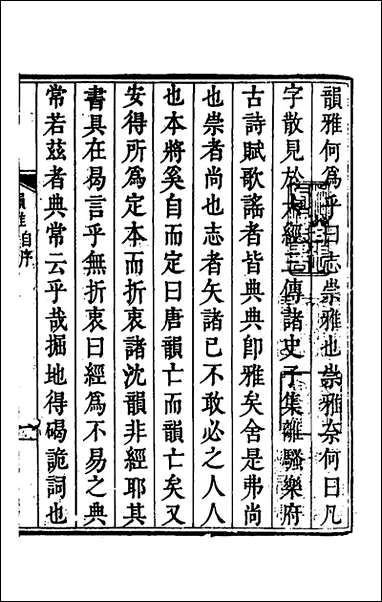 韻雅何為乎曰志崇雅也崇雅奈何曰凡
字散見於經傳諸史子集離騷樂府
古詩賦歌謠者皆典典卽雅矣舍是弗尚
也崇者尚也志者矢諸己不敢必之人人
也本將奚自而定曰唐韻亡而韻亡矣又
安得所為定本而折衷諸沈韻非經耶其
書具在曷言乎無折衷曰經為不易之典
常若茲者典常云乎哉掘地得碣詭詞也
韻雅自序